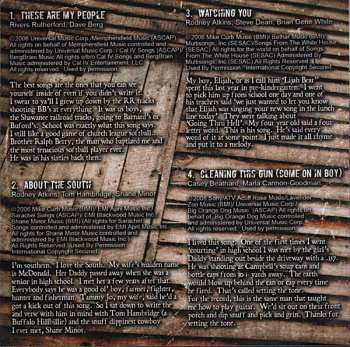 1. THESE ARE MY PEOPLE
Rivers Rutherford; Dave Berg
©2006 Universal Music Corp./Memphersfield Music (ASCAP)
All rights on behalf of Memphersfield Music controlled and
administered by Universal Music Corp. / Cal IV Songs (ASCAP) /
BergBrain Music (ASCAP)
All rights for Cal IV Songs and
BergBrain Music administered by Cal IV Entertainment, LLC.
All rights reserved. Used by Permission.
The best songs are the ones that you can see
yourself inside of even if you didn't write it.
I swear to ya'll I grew up down by the RR tracks
shooting BB's at everything but was us boys,
the Shawanee railroad tracks, going to Barnard's or
Buford's. School was exactly what this song says.
I still like a good game of church league softball.
Brother Ralph Berry, the man who baptized me and
the most tenacious softball player ever.
He was in his sixties back then.
2. ABOUT THE SOUTH
Rodney Atkins; Tom Hambridge; Shane Minor
©2006 Mike Curb Music (BMI)
Songs (ASCAP)
Shane Minor Music (BMI)
All rights for
All rights for Shane Minor Music controlled and
administered by EMI Blackwood Music Inc.
All Rights Reserved
International Copyright Secured Used by Permission
I'm southern. I love the South. My wife's maiden name
is McDonald. Her Daddy passed away when she was a
senior in high school. I met her a few years after that.
Everybody says he was a good ol' boy, farmer, fighter,
hunter and fisherman. Tammy Jo, my wife, said he'd a
got a kick out of this song. So I sat down to write and
the verse with him in mind with Tom Hambridge (a
Buffalo Hillbillie) and the snuff dippinest cowboy
I ever met, Shane Minor.
3. WATCHING YOU
Rodney Atkins; Steve Dean; Brian Gene White
©2006 Mike Curb Music (BMI)/ Bethar Music (BMI)/
Multisongs, Inc. (SESAC)/Songs From The White House
(SESAC) All rights for the world on behalf of Songs
From The White House administered by
Multisongs, Inc. (SESAC) All rights reserved
Used by permission.
My boy, Elijah, or as I call him "Lijah Bear"
spent this last year in pre-kindergarten. I went
to pick him up from school one day and one of
his teachers said "we just wanted to let you know
that Elijah was singing your new song in the lunch
line today". They were talking about
"Going Thru Hell". My four year old said a four
letter word. This is his song. He's said every
word of it at some point. I just made it all rhyme
and put it to a melody.
4. CLEANING THIS GUN (COME ON IN BOY)
Casey Beathard; Marla Cannon-Goodman
©2006 Sony/ATV Acuff Rose Music/Lavender
Zoo Music (BMI)/ Universal Music Corp./
Big Orange Dog Music (ASCAP) All rights on
behalf of Big Orange Dog Music controlled
and administered by Universal Music Corp.
All rights reserved Used by permission
I loved this song. One of the first times I went
"courting" in high school I was met by the girl's
Daddy standing out beside the driveway with a .357.
He was shooting at Campbell's soup cans and
bottle caps from 10-15 yards away. The earth
would blow up behind the can or cap every time
he fired. That's called setting the tone.
For the record, this is the same man that taught
me how to play guitar. We'd sit out on their front
porch and dip snuff and pick and grin. Thanks for
setting the tone.